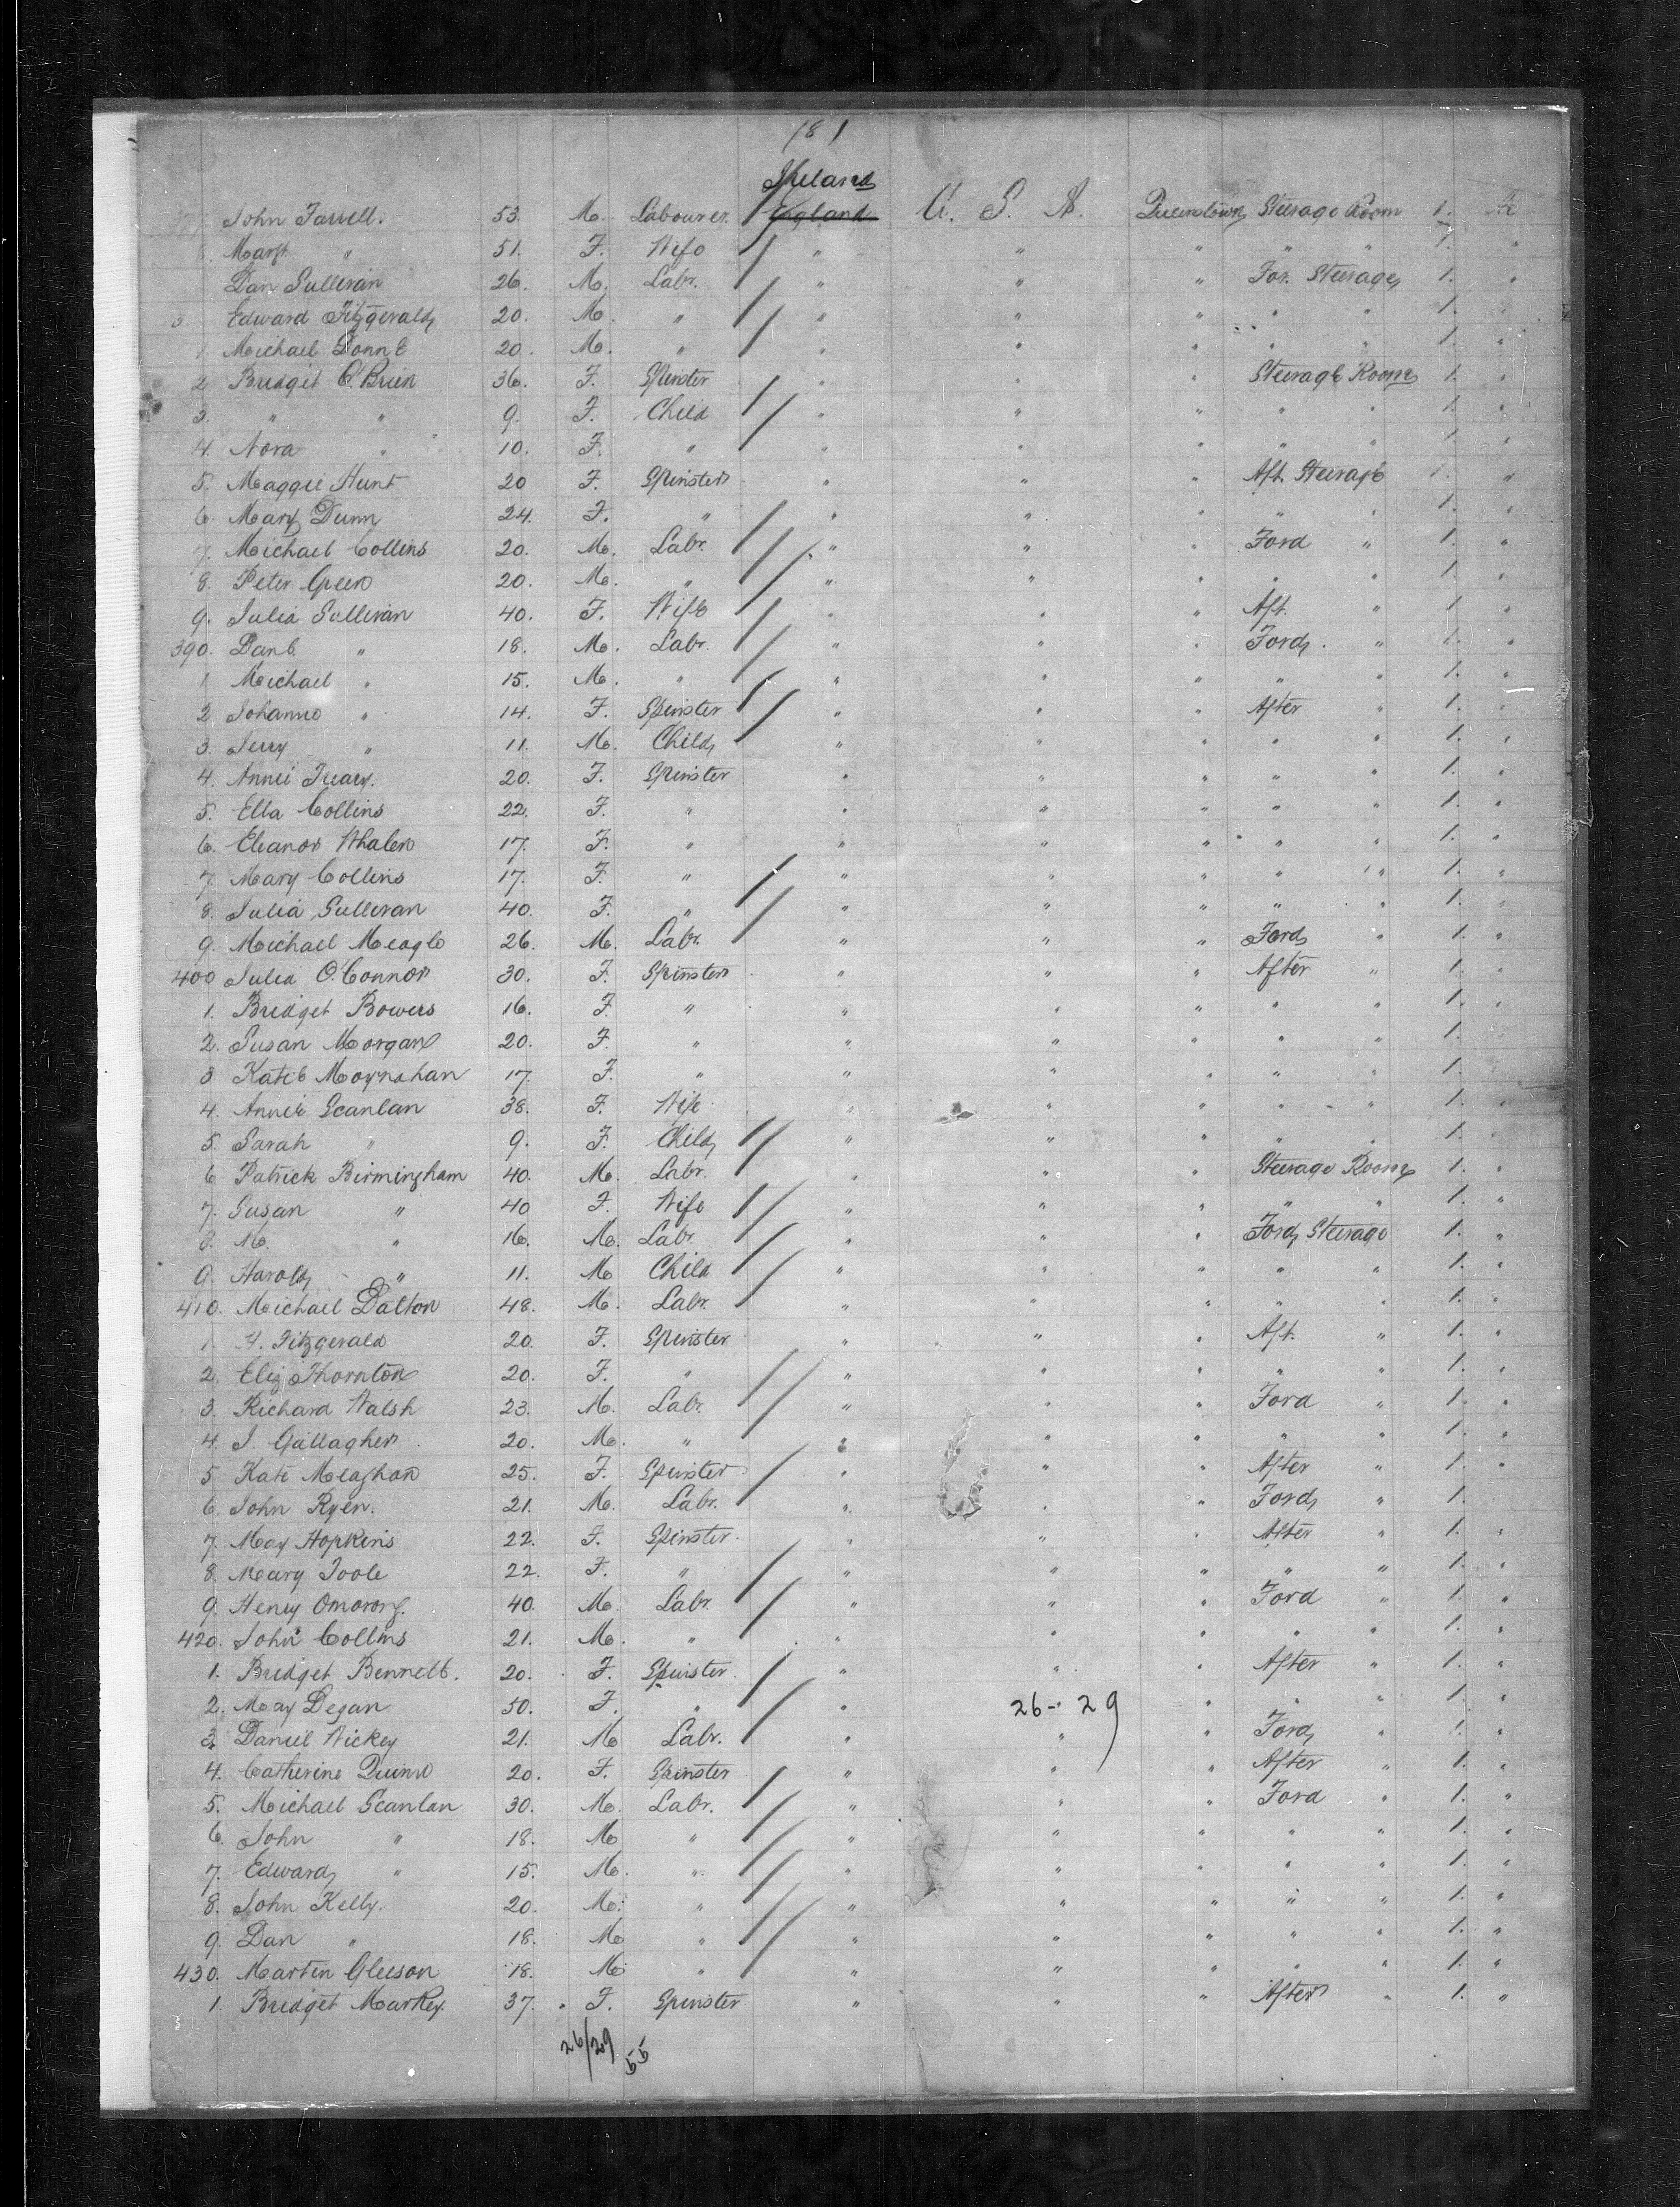 (8)
Ireland
John Farrell. 53. M. Labourer. England U. S. A. Queenstown Steerage Room 1.
Margt " 51. F. Wife " " " " " 1. "
Dan Sullivan 26. M. Labr. " " " For. Steerage 1. "
Edward Fitzgerald 20. M. " " " " " " 1. "
1. Michael 20. M. " " " " " " 1. "
2 Bridget O'Brien 36. F. Spinster " " " Steerage Room 1. "
3. " " 9. F. Child " " " " " 1. "
4. Nora " 10. F. " " " " " " 1. "
5. Maggie Hunt 20 F. Spinster " " " Aft. Steerage 1. "
6. Mary Dunn 24. F. " " " " " " 1. "
7. Michael Collins 20. M. Labr. " " " Ford " 1. "
8. Peter Green 20. M. " " " " " " 1. "
9. Julia Sullivan 40. F. Wife " " " Aft. " 1. "
390. Danl " 18. M. Labr. " " " Ford. " 1. "
1 Michael " 15. M. " " " " " " 1. "
2 Johanna " 14. F. Spinster " " " After " 1. "
3. Jerry " 11. M. Child " " " " " 1. "
4. Annie Treacy. 20. F. Spinster " " " " " 1. "
5. Ella Collins 22. F. " " " " " " 1. "
6. Eleanor Whalen 17. F. " " " " " " 1. "
7. Mary Collins 17. F. " " " " " " 1. "
8. Julia Sullivan 40. F. " " " " " " 1. "
9. Michael Meagle 26. M. Labr. " " " Ford " 1. "
400 Julia O'Connor 30. F. Spinster " " " After " 1. "
1. Bridget Bowers 16. F. " " " " " " 1. "
2. Susan Morgan 20. F. " " " " " " 1.
3 Katie Moynahan 17. F. " " " " " " 1.
4. Annie Scanlan 38. F. Wife " " " " " 1. "
5. Sarah " 9. F. Child " " " " " 1. "
6 Patrick Birmingham 40. M. Labr. " " " Steerage Room 1. "
7. Susan " 40 F. Wife " " " " " 1. "
8. M. " 16. M. Labr. " " " Ford Steerage 1. "
9. Harold " 11. M Child " " " " " 1. "
410. Michael Dalton 48. M. Labr. " " " " " 1. "
1. H. Fitzgerald 20. F. Spinster " " " Aft. " 1. "
2. Eliz Thornton 20. F. " " " " " " 1. "
3. Richard Walsh 23. M. Labr. " " " Ford " 1. "
4. J. Gallagher 20. M. " " " " " " 1. "
5 Kate Meaghan 25. F. Spinster " " " After " 1. "
6. John Ryen. 21. M. Labr. " " " Ford " 1.
7. May Hopkins 22. F. Spinster " " " After " 1. "
8. Mary Toole 22. F. " " " " " " 1. "
9. Henry 40. M. Labr. " " " Ford " 1. "
420. John Collins 21. M. " " " " " " 1. "
1. Bridget Bennett. 20. F. Spinster " " " After " 1. "
2. May Degan 50. F. " " 26 - 29 " " " 1. "
3. Daniel Hickey 21. M Labr. " " " Ford " 1. "
4. Catherine Quinn 20. F. Spinster " " " After " 1. "
5. Michael Scanlan 30. M. Labr. " " " Ford " 1. "
6. John " 18. M " " " " " " 1. "
7. Edward " 15. M. " " " " " " 1. "
8. John Kelly. 20. M. " " " " " " 1. "
9. Dan " 18. M " " " " " " 1. "
430. Martin Gleeson 18. M. " " " " " " 1. "
1 Bridget Markey 37. F. Spinster " " " After " 1. "
26/29 55